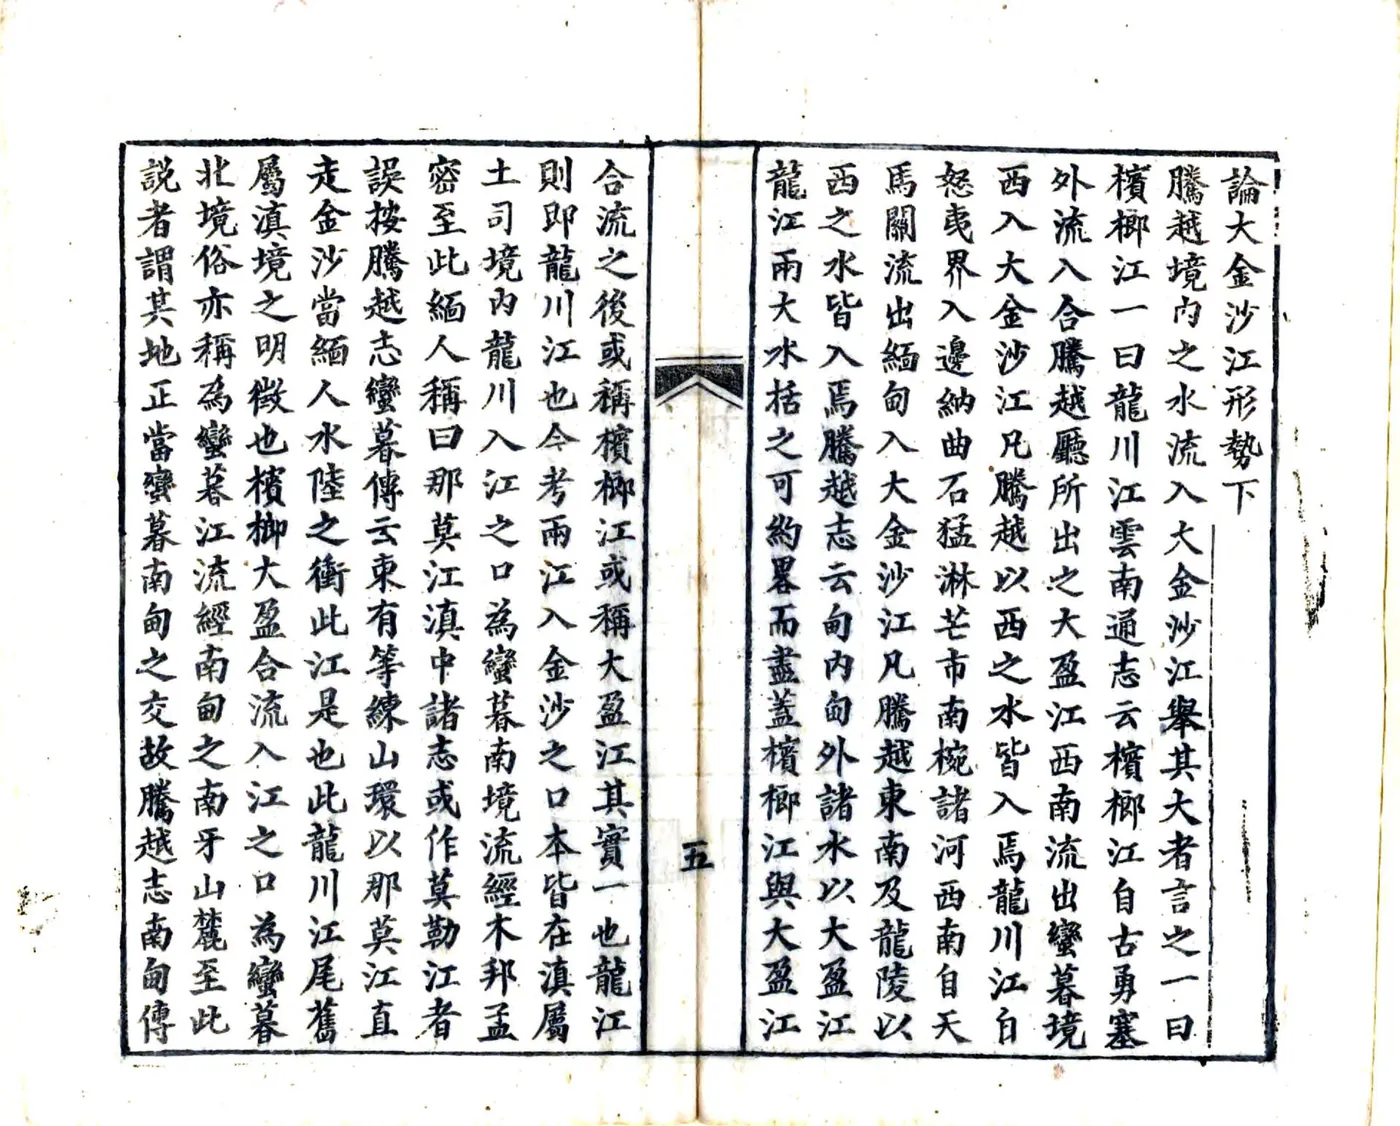 論大金沙江形勢下
騰越境内之水流入大金沙江舉其大者言之一曰
檳榔江一曰龍川江雲南通志云檳榔江自古勇塞
外流入合騰越廳所出之大盈江西南流出蠻暮境
西入大金沙江凡騰越以西之水皆入焉龍川江自
怒夷界入邊納曲石猛淋芒市南椀諸河西南自天
馬關流出緬甸入大金沙江凡騰越東南及龍陵以
西之水皆入焉騰越志云甸内甸外諸水以大盈江
龍江兩大水括之可約畧而盡蓋檳榔江與大盈江
五
合流之後或稱檳榔江或稱大盈江其實一也龍江
則即龍川江也今考兩江入金沙之口本皆在滇屬
土司境内龍川入江之口為蠻暮南境流經木邦孟
密至此緬人稱曰那莫江滇中諸志或作莫勒江者
誤按騰越志蠻暮傳云東有等練山環以那莫江直
走金沙當緬人水陸之衝此江是也此龍川江尾舊
屬滇境之明徵也檳榔大盈合流入江之口為蠻暮
北境俗亦稱為蠻暮江流經南甸之南牙山麓至此
説者謂其地正當蠻暮南甸之交故騰越志南甸傳